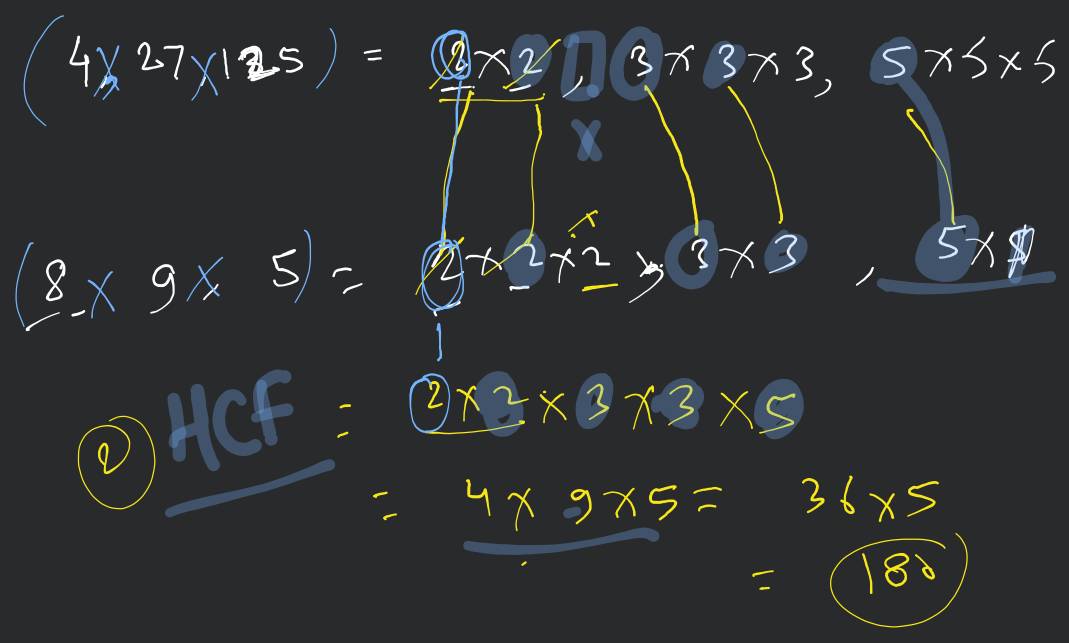 (4 × 27 × 125) = 2 × 2, 3 × 3 × 3, 5 × 5 × 5
x
(8 × 9 × 5) = 2 × 2 × 2, 3 × 3, 5 ×
HCF = 2 × 2 × 3 × 3 × 5
= 4 × 9 × 5 = 36 × 5
= 180